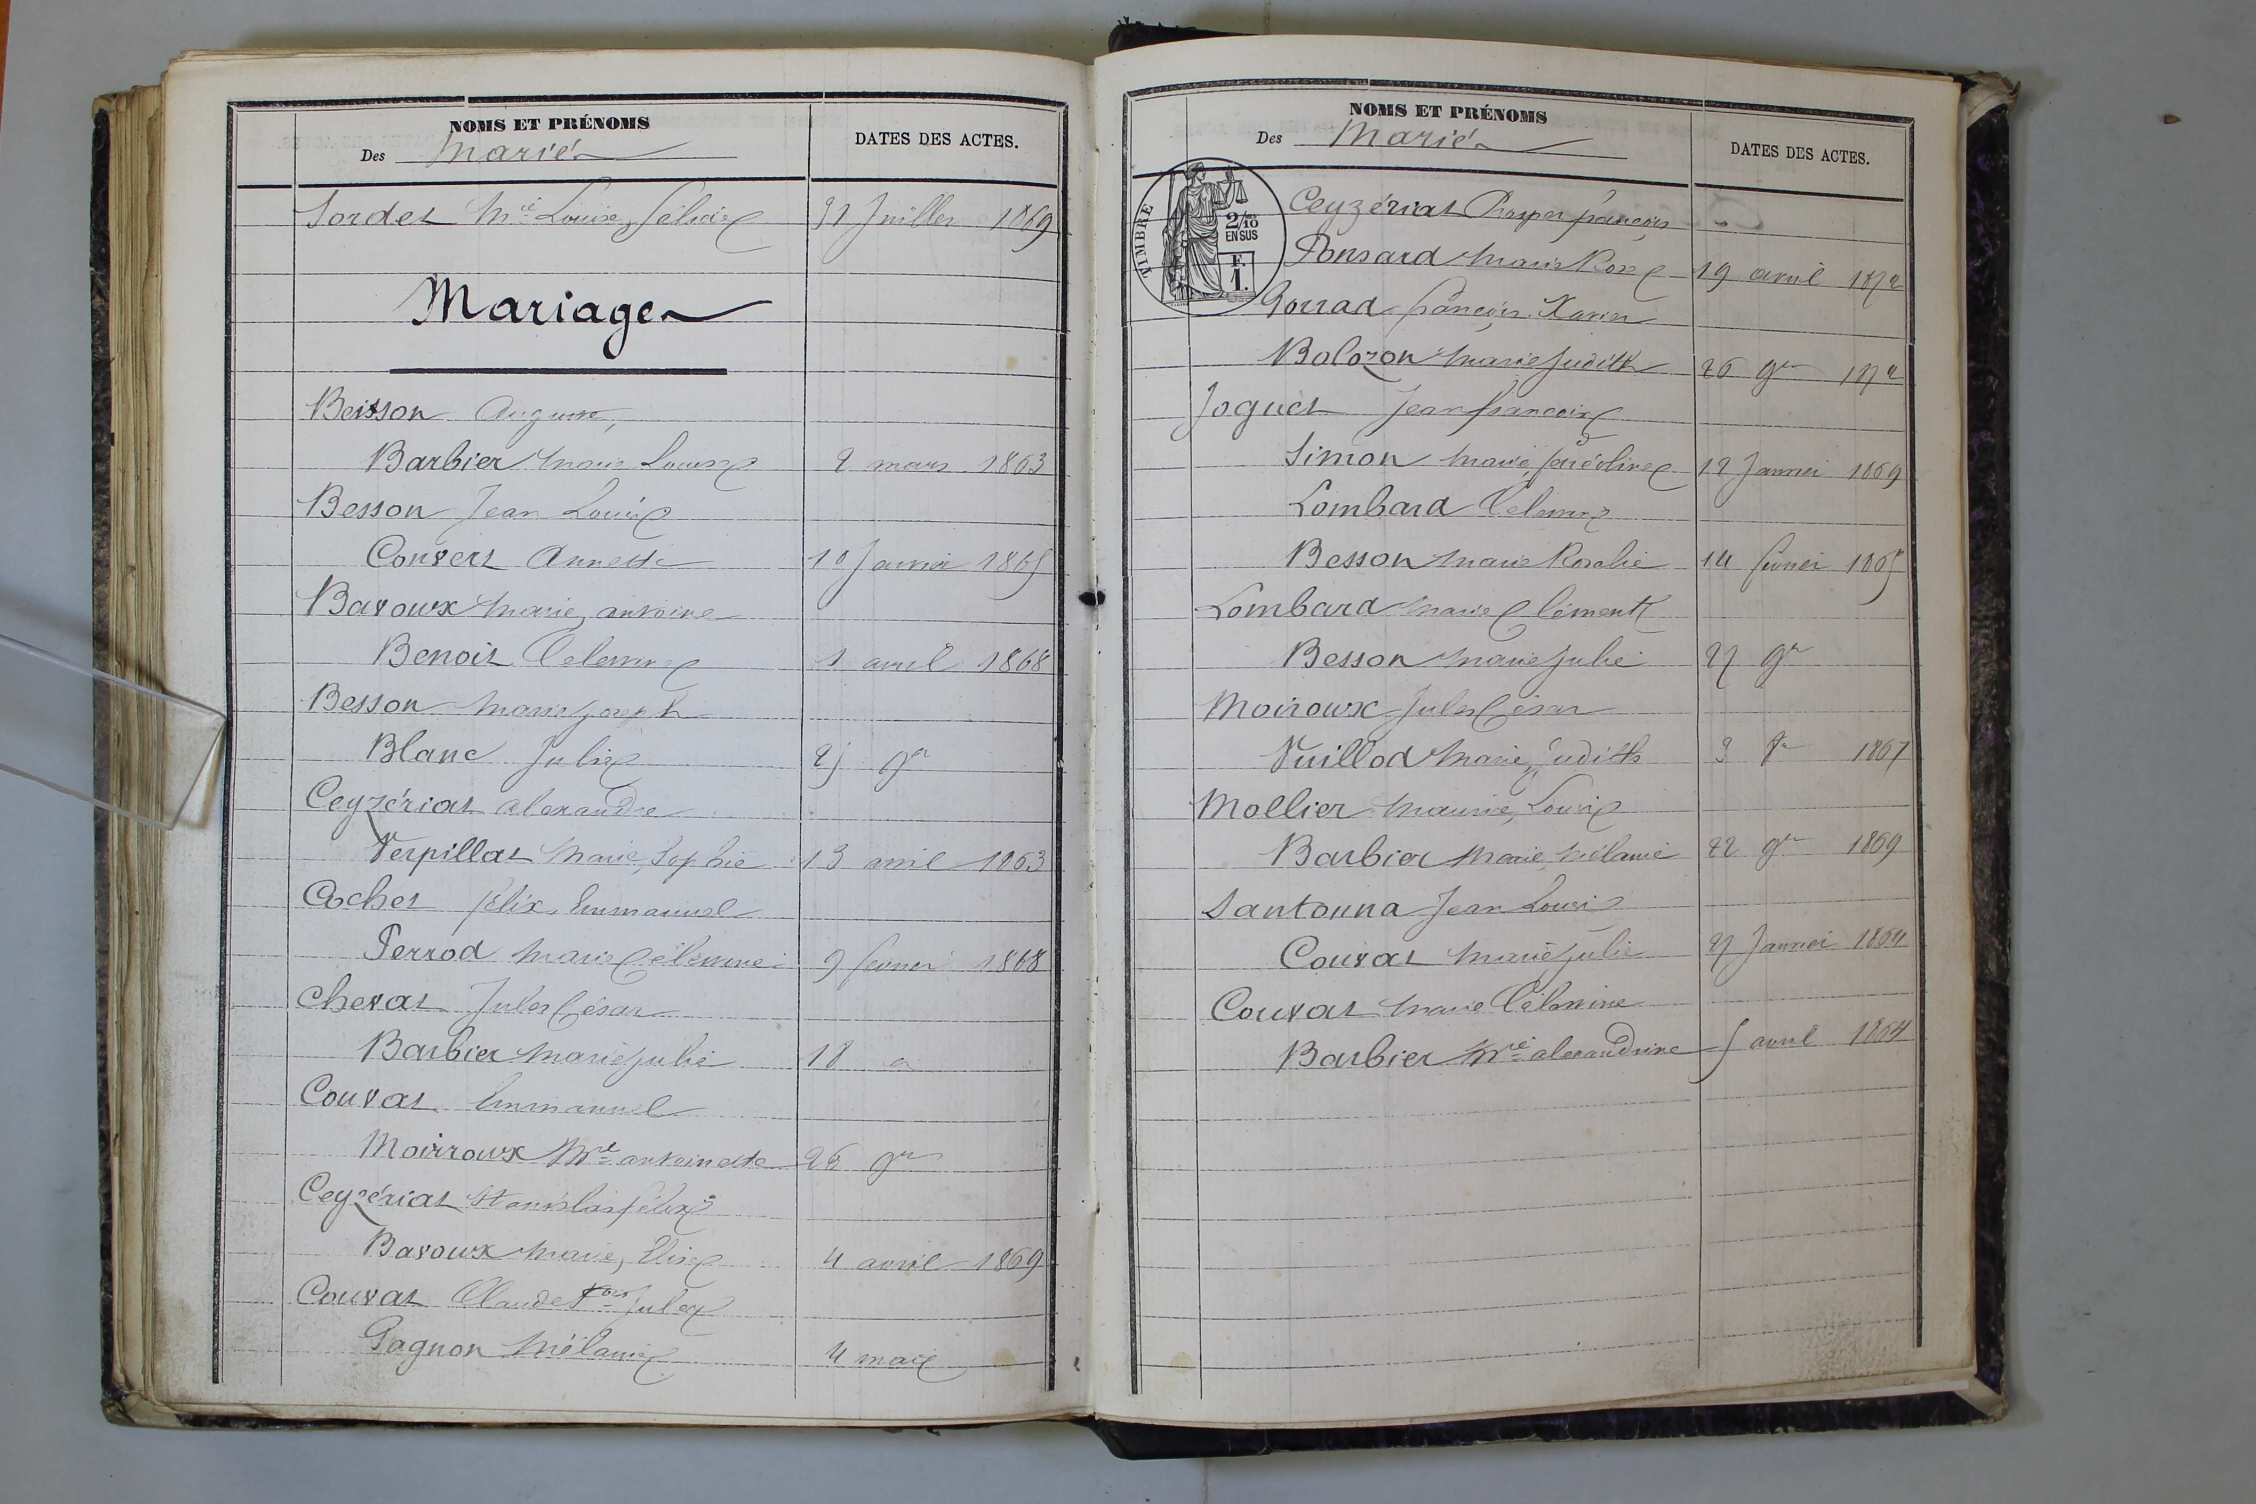 NOMS ET PRÉNOMS
Des Mariés
DATES DES ACTES.
Sordet Mie Louise, Félicie 31 Juillet 1869
Mariages
Beisson Auguste,
Barbier Marie Louise 2 mars 1863
Besson Jean Louis
Convert Annette 10 Janvier 1865
Bavoux Marie, antoine
Benoit Célestine 1 avril 1868
Besson Marie Joseph
Blanc Julie 25 9re
Ceyzériat alexandre
Verpillat Marie, Sophie 13 avril 1863
Cochet félix, Emmanuel
Perrod Marie Célestine 9 fevrier 1868
Chevat Jules César
Barbier Marie Julie 18 a
Couvat Emmanuel
Moirroux Mie antoinette 26 9re
Ceyzériat Stanislas félix
Bavoux Marie, Elise 4 avril 1869
Couvat Claude Fois Jules
Gagnon Mélanie 4 mai
NOMS ET PRÉNOMS
Des Mariés
DATES DES ACTES.
TIMBRE
2/10 EN SUS
F. 1.
Ceyzériat Prosper françois
Ponsard Marie Rose 19 avril 1872
Gorrad françois Xavier
Bolozon Marie Judith 26 9re 1872
Joguet Jean françois
Simon Marie, 12 Janvier 1869
Lombard
Besson Marie Rosalie 14 fevrier 1865
Lombard Marie Clément
Besson Marie Julie 27 9re
Moiroux Jules César
Vuillod Marie, Judith 3 1867
Mollier Maurice, Louis
Barbier Marie, Mélanie 22 9re 1869
Santonna Jean Louis
Couvat Marie Julie 27 Janvier 1864
Couvat Marie Célestine
Barbier Mie alexandrine 5 avril 1864